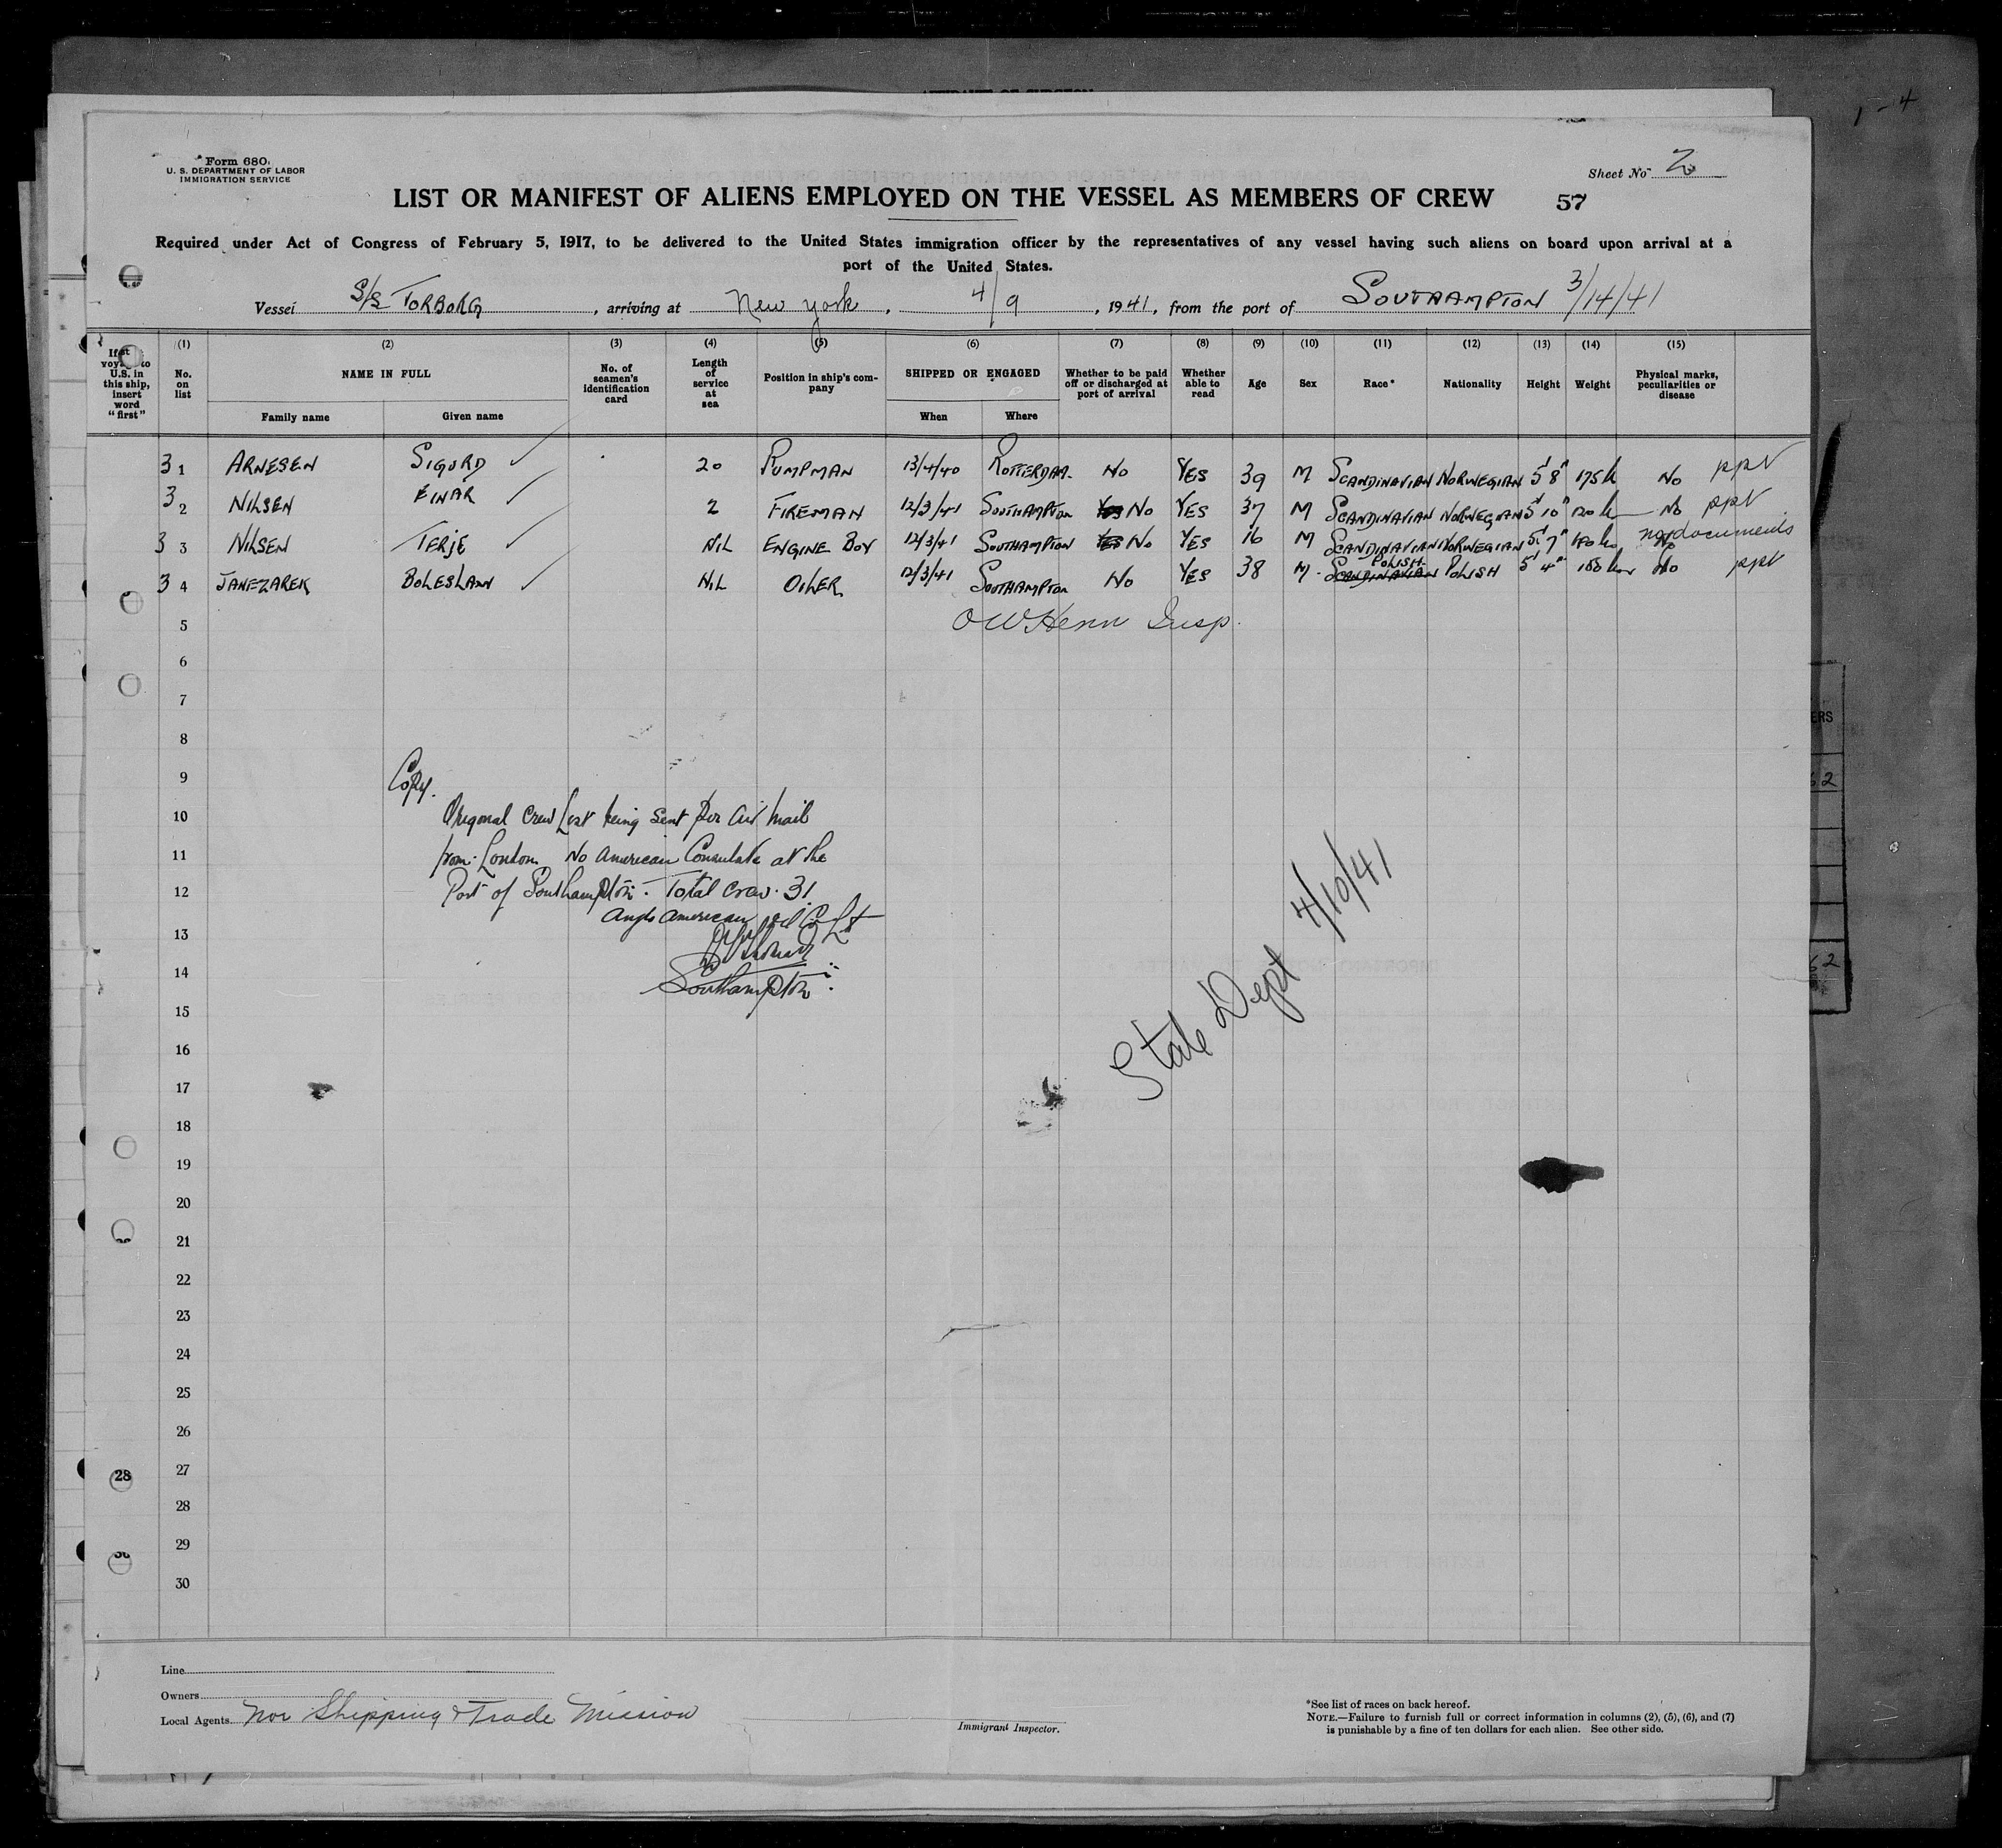 1 - 4
Form 680
U. S. DEPARTMENT OF LABOR
IMMIGRATION SERVICE
Sheet No 2
LIST OR MANIFEST OF ALIENS EMPLOYED ON THE VESSEL AS MEMBERS OF CREW 57
Required under Act of Congress of February 5, 1917, to be delivered to the United States immigration officer by the representatives of any vessel having such aliens on board upon arrival at a
port of the United States.
Vessel S/S TORBORG, arriving at New York, 4/9, 1941, from the port of SOUTHAMPTON 3/14/41
(1) (2) (3) (4) (5) (6) (7) (8) (9) (10) (11) (12) (13) (14) (15)
If 1st voyage to U.S. in this ship, insert word "first" No. on list NAME IN FULL No. of seamen's identification card Length of service at sea Position in ship's company SHIPPED OR ENGAGED Whether to be paid off or discharged at port of arrival Whether able to read Age Sex Race* Nationality Height Weight Physical marks, peculiarities or disease
Family name Given name When Where
3 1 ARNESEN SIGURD 20 PUMPMAN 13/4/40 ROTTERDAM NO YES 39 M SCANDINAVIAN NORWEGIAN 5'8" 175 No ppt
3 2 NILSEN EINAR 2 FIREMAN 12/3/41 SOUTHAMPTON YES NO YES 37 M SCANDINAVIAN NORWEGIAN 5'10" No ppt
3 3 NILSEN TERJE NIL ENGINE BOY 12/3/41 SOUTHAMPTON YES NO YES 16 M SCANDINAVIAN NORWEGIAN 5'7" No no documents
3 4 JANEZAREK BOLESLAW NIL OILER 12/3/41 SOUTHAMPTON NO YES 38 M. SCANDINAVIAN POLISH POLISH 5'4" No ppt
5 OWHenn Insp.
6
7
8
9 Copy.
10 Origonal Crew List being sent per air mail
11 from London No American Consulate at the
12 Port of Southampton. Total Crew. 31.
Anglo American Oil Co Lt
13
14 Southampton
15
State Dept 4/10/41
16
17
18
19
20
21
22
23
24
25
26
27
28
29
30
28
Line
Owners
Local Agents Nor Shipping & Trade Mission
Immigrant Inspector.
*See list of races on back hereof.
NOTE.—Failure to furnish full or correct information in columns (2), (5), (6), and (7)
is punishable by a fine of ten dollars for each alien. See other side.